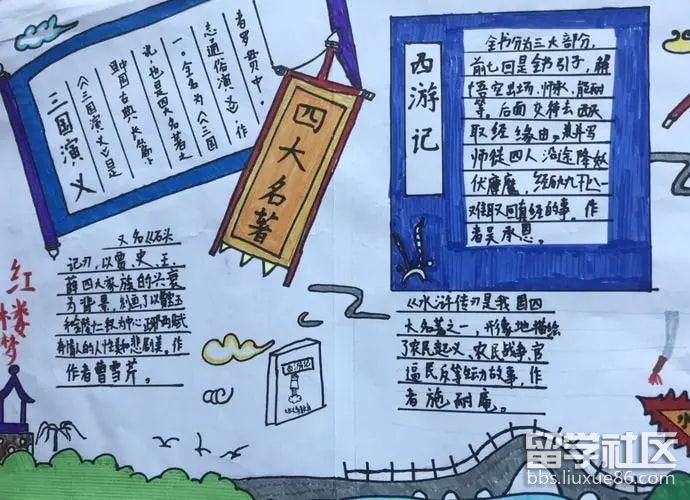 三国演义
《三国演义》是
中国古典长篇
说，也是四大名著之
一。全名为《三国
志通俗演义》作
者罗贯中。
四大名著
西游记
全书分为三大部分，
前七回是全书引子，
悟空出场、师承、能耐
等。后面交待去西天
取经缘由。并写
师徒四人沿途降妖
伏魔，经历九九八一
难取回真经的事。作
者吴承恩。
红楼梦
又名《石头
记》，以贾、史、王、
薛四大家族的兴衰
为背景，刻画了以
和金陵十二钗为中心正邪两赋
有情人的人性美和悲剧美。作
作者曹雪芹。
《水浒传》是我国四
大名著之一，形象地描绘
了农民起义、农民战争、官
逼民反等生动故事，作
者施耐庵。
西游记
水
留学社区
bbs.liuxue86.com